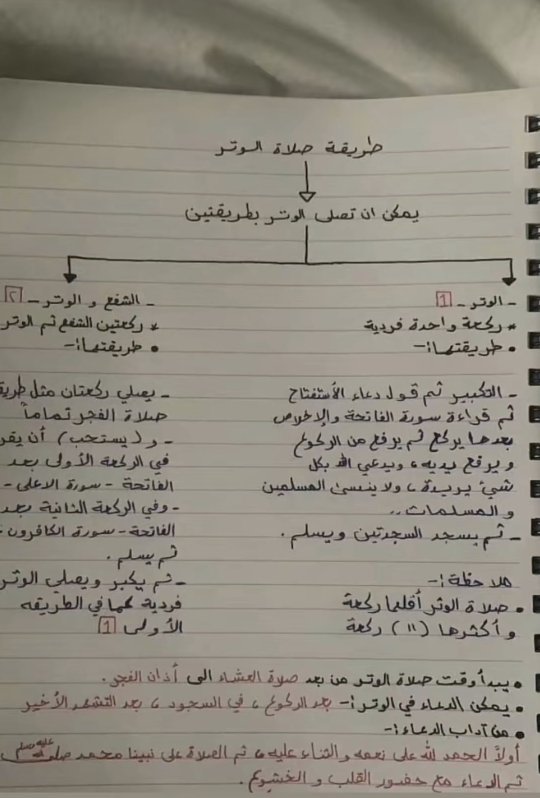 طريقة صلاة الوتر
يمكن ان تصلى الوتر بطريقتين
- الوتر - 1
* ركعة واحدة فردية
• طريقتها:-
- التكبير ثم قول دعاء الأستفتاح
ثم قراءة سورة الفاتحة والإخلاص
بعدها يركع ثم يرفع من الركوع
ويرفع يديه، ويدعي الله بكل
شيئ يريدة، ولا ينسى المسلمين
والمسلمات..
- ثم يسجد السجدتين ويسلم.
ملاحظة:-
• صلاة الوتر أقلها ركعة
وأكثرها (١١) ركعة
- الشفع و الوتر - ٢
* ركعتين الشفع ثم الوتر
• طريقتها:-
- يصلي ركعتان مثل
صلاة الفجر تماماً
- و(يستحب) أن
في الركعة الأولى بعد
الفاتحة - سورة الاعلى -
- وفي الركعة الثانية بعد
الفاتحة - سورة الكافرون
ثم يسلم.
- ثم يكبر ويصلي الوتر
فردية كما في الطريقه
الأولى 1
• يبدأ وقت صلاة الوتر من بعد صلاة العشاء الى أذان الفجر.
• يمكن الدعاء في الوتر:- بعد الركوع، في السجود، بعد التشهد الأخير
• من آداب الدعاء:-
أولاً الحمد لله على نعمه والثناء عليه، ثم الصلاة على نبينا محمد صلى الله عليه وسلم
ثم الدعاء مع حضور القلب و الخشوع.